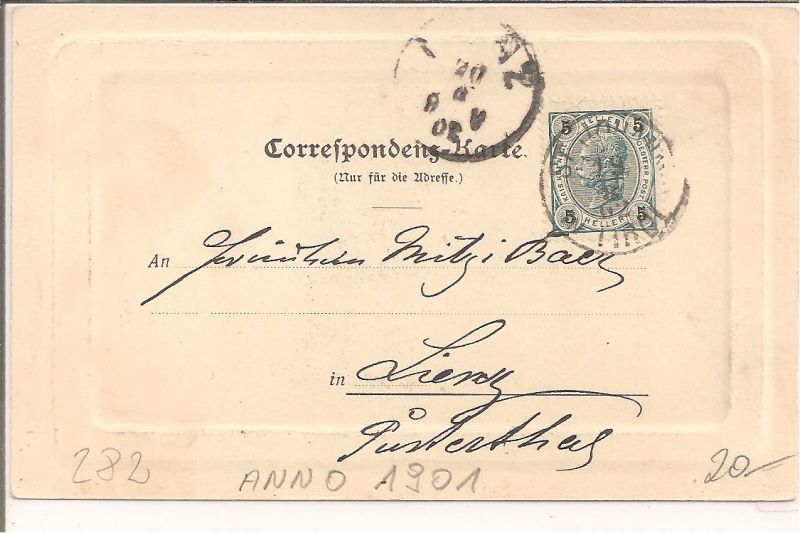 20
9
02
Correspondenz-Karte.
(Nur für die Adresse.)
5 HELLER 5
KAIS. KÖN. OESTERR. POST
5 HELLER 5
An Fräulein Mitzi Baer
in Lienz
Pusterthal
282 ANNO 1901 20.-